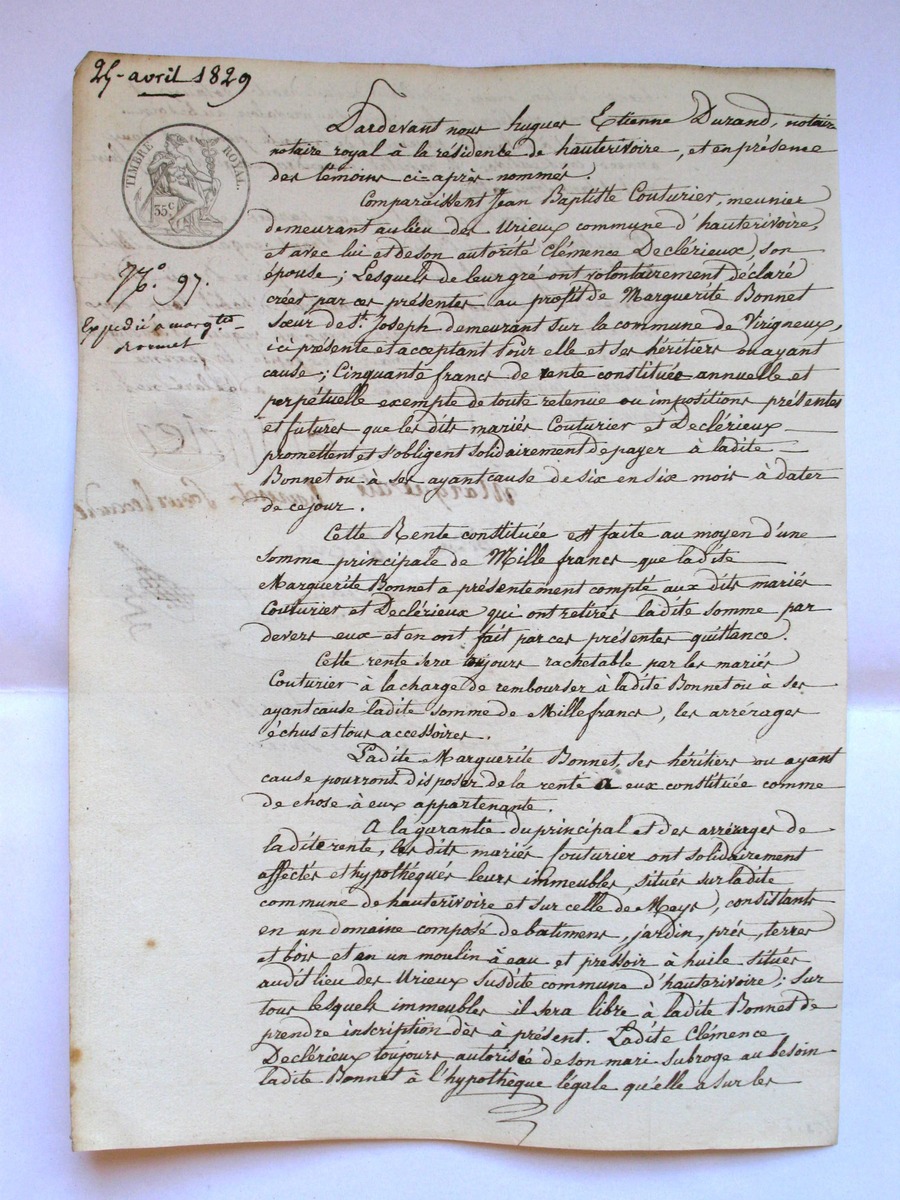 25 avril 1829
TIMBRE ROYAL.
35 c.
N.º 97.
Expédié a margte
Bonnet
Pardevant nous hugues Etienne Durand, notaire
notaire royal à la résidence de hauterivoire, et en présence
des témoins ci-après nommés.
Comparaissent Jean Baptiste Couturier, meunier
demeurant au lieu des Urieux commune d'hauterivoire,
et avec lui et de son autorité Clémence Declérieux, son
épouse ; Lesquels de leur gré ont volontairement déclaré
créer par ces présentes au profit de Marguerite Bonnet
Sœur de St. Joseph demeurant sur la commune de Virigneux,
ici présente et acceptant Pour elle et ses héritiers ou ayant
cause ; Cinquante francs de rente constituée annuelle et
perpétuelle exempte de toute retenue ou impositions présentes
et futures que les dits mariés Couturier et Declérieux
promettent et s'obligent solidairement de payer à ladite
Bonnet ou à ses ayant cause de six en six mois à dater
de ce jour.
Cette Rente constituée est faite au moyen d'une
somme principale de Mille francs que ladite
Marguerite Bonnet a présentement compté aux dits mariés
Couturier et Declérieux qui ont retirés ladite somme par
devers eux et en ont fait par ces présentes quittance.
Cette rente sera toujours rachetable par les mariés
Couturier à la charge de rembourser à ladite Bonnet ou à ses
ayant cause ladite somme de Mille francs, les arrérages
échus et tous accessoires.
Ladite Marguerite Bonnet, ses héritiers ou ayant
cause pourront disposer de la rente a eux constituée comme
de chose à eux appartenante.
A la garantie du principal et des arrérages de
ladite rente, les dits mariés Couturier ont solidairement
affectés et hypothéqués leurs immeubles, situés sur ladite
commune de hauterivoire et sur celle de Meys, consistants
en un domaine composé de batimens, jardin, prés, terres
et bois et en un moulin à eau et pressoir à huile situés
audit lieu des Urieux susdite commune d'hauterivoire ; sur
tous lesquels immeubles il sera libre à ladite Bonnet de
prendre inscription dès à présent. Ladite Clémence
Declérieux toujours autorisée de son mari subroge au besoin
ladite Bonnet à l'hypothèque légale qu'elle a sur les